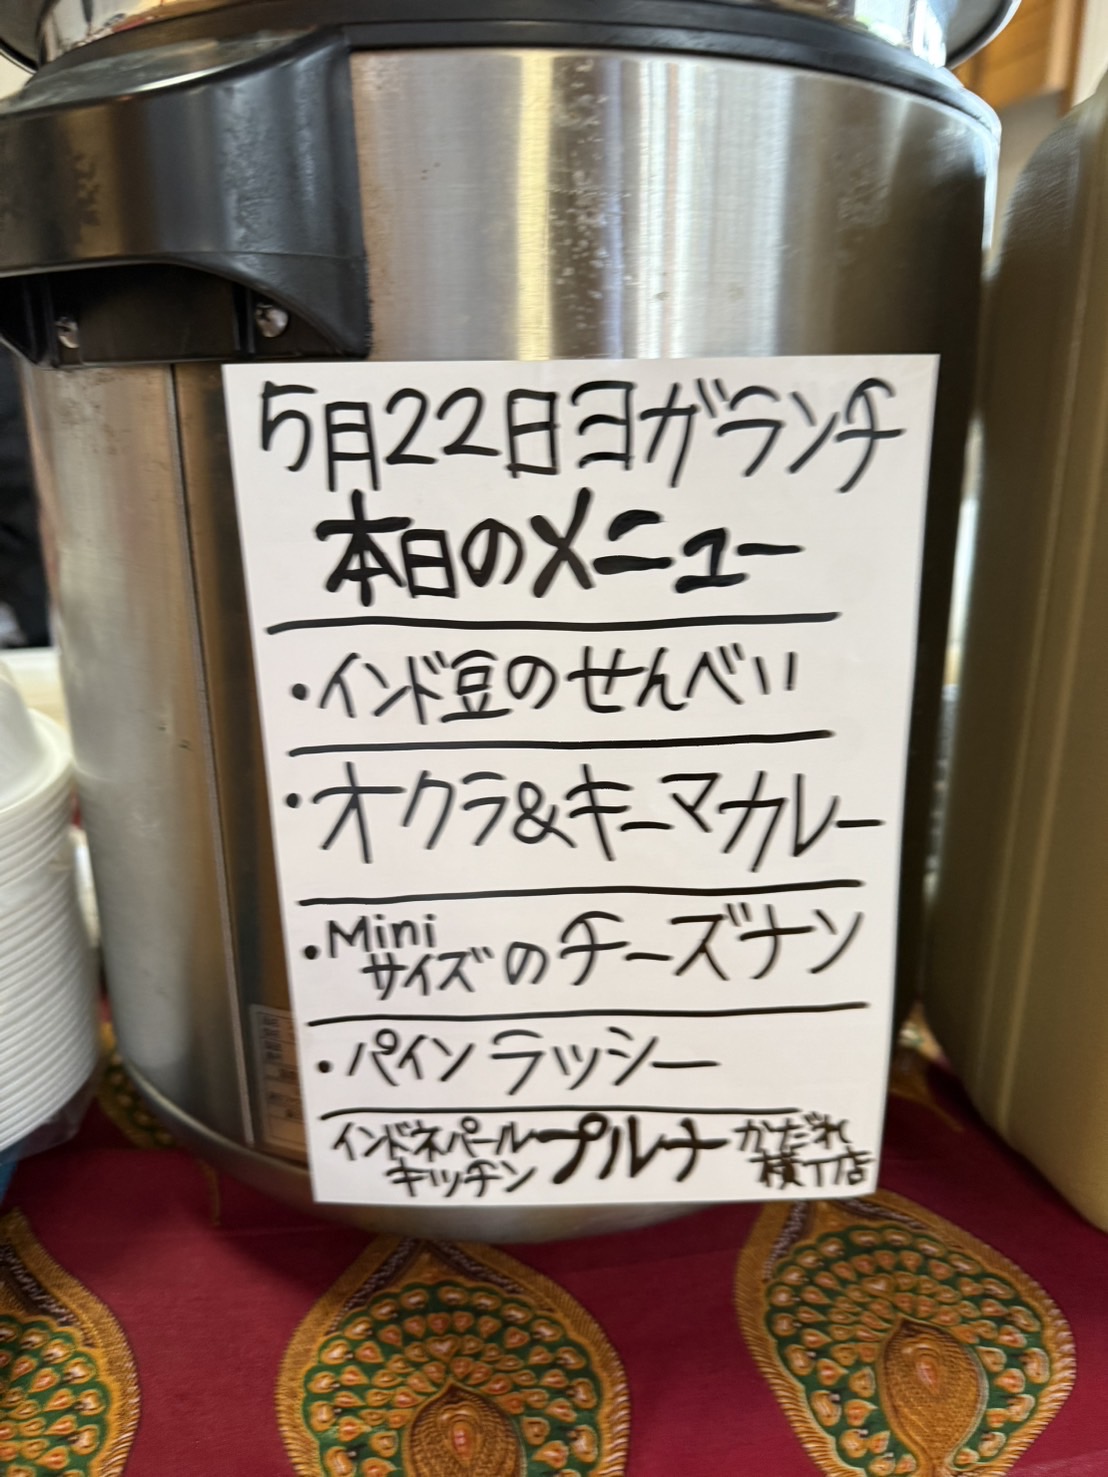 5月22日ヨガランチ
本日のメニュー
・インド豆のせんべい
・オクラ&キーマカレー
・Mini
サイズのチーズナン
・パインラッシー
インドネパール
キッチン プルナ かだれ
横丁店